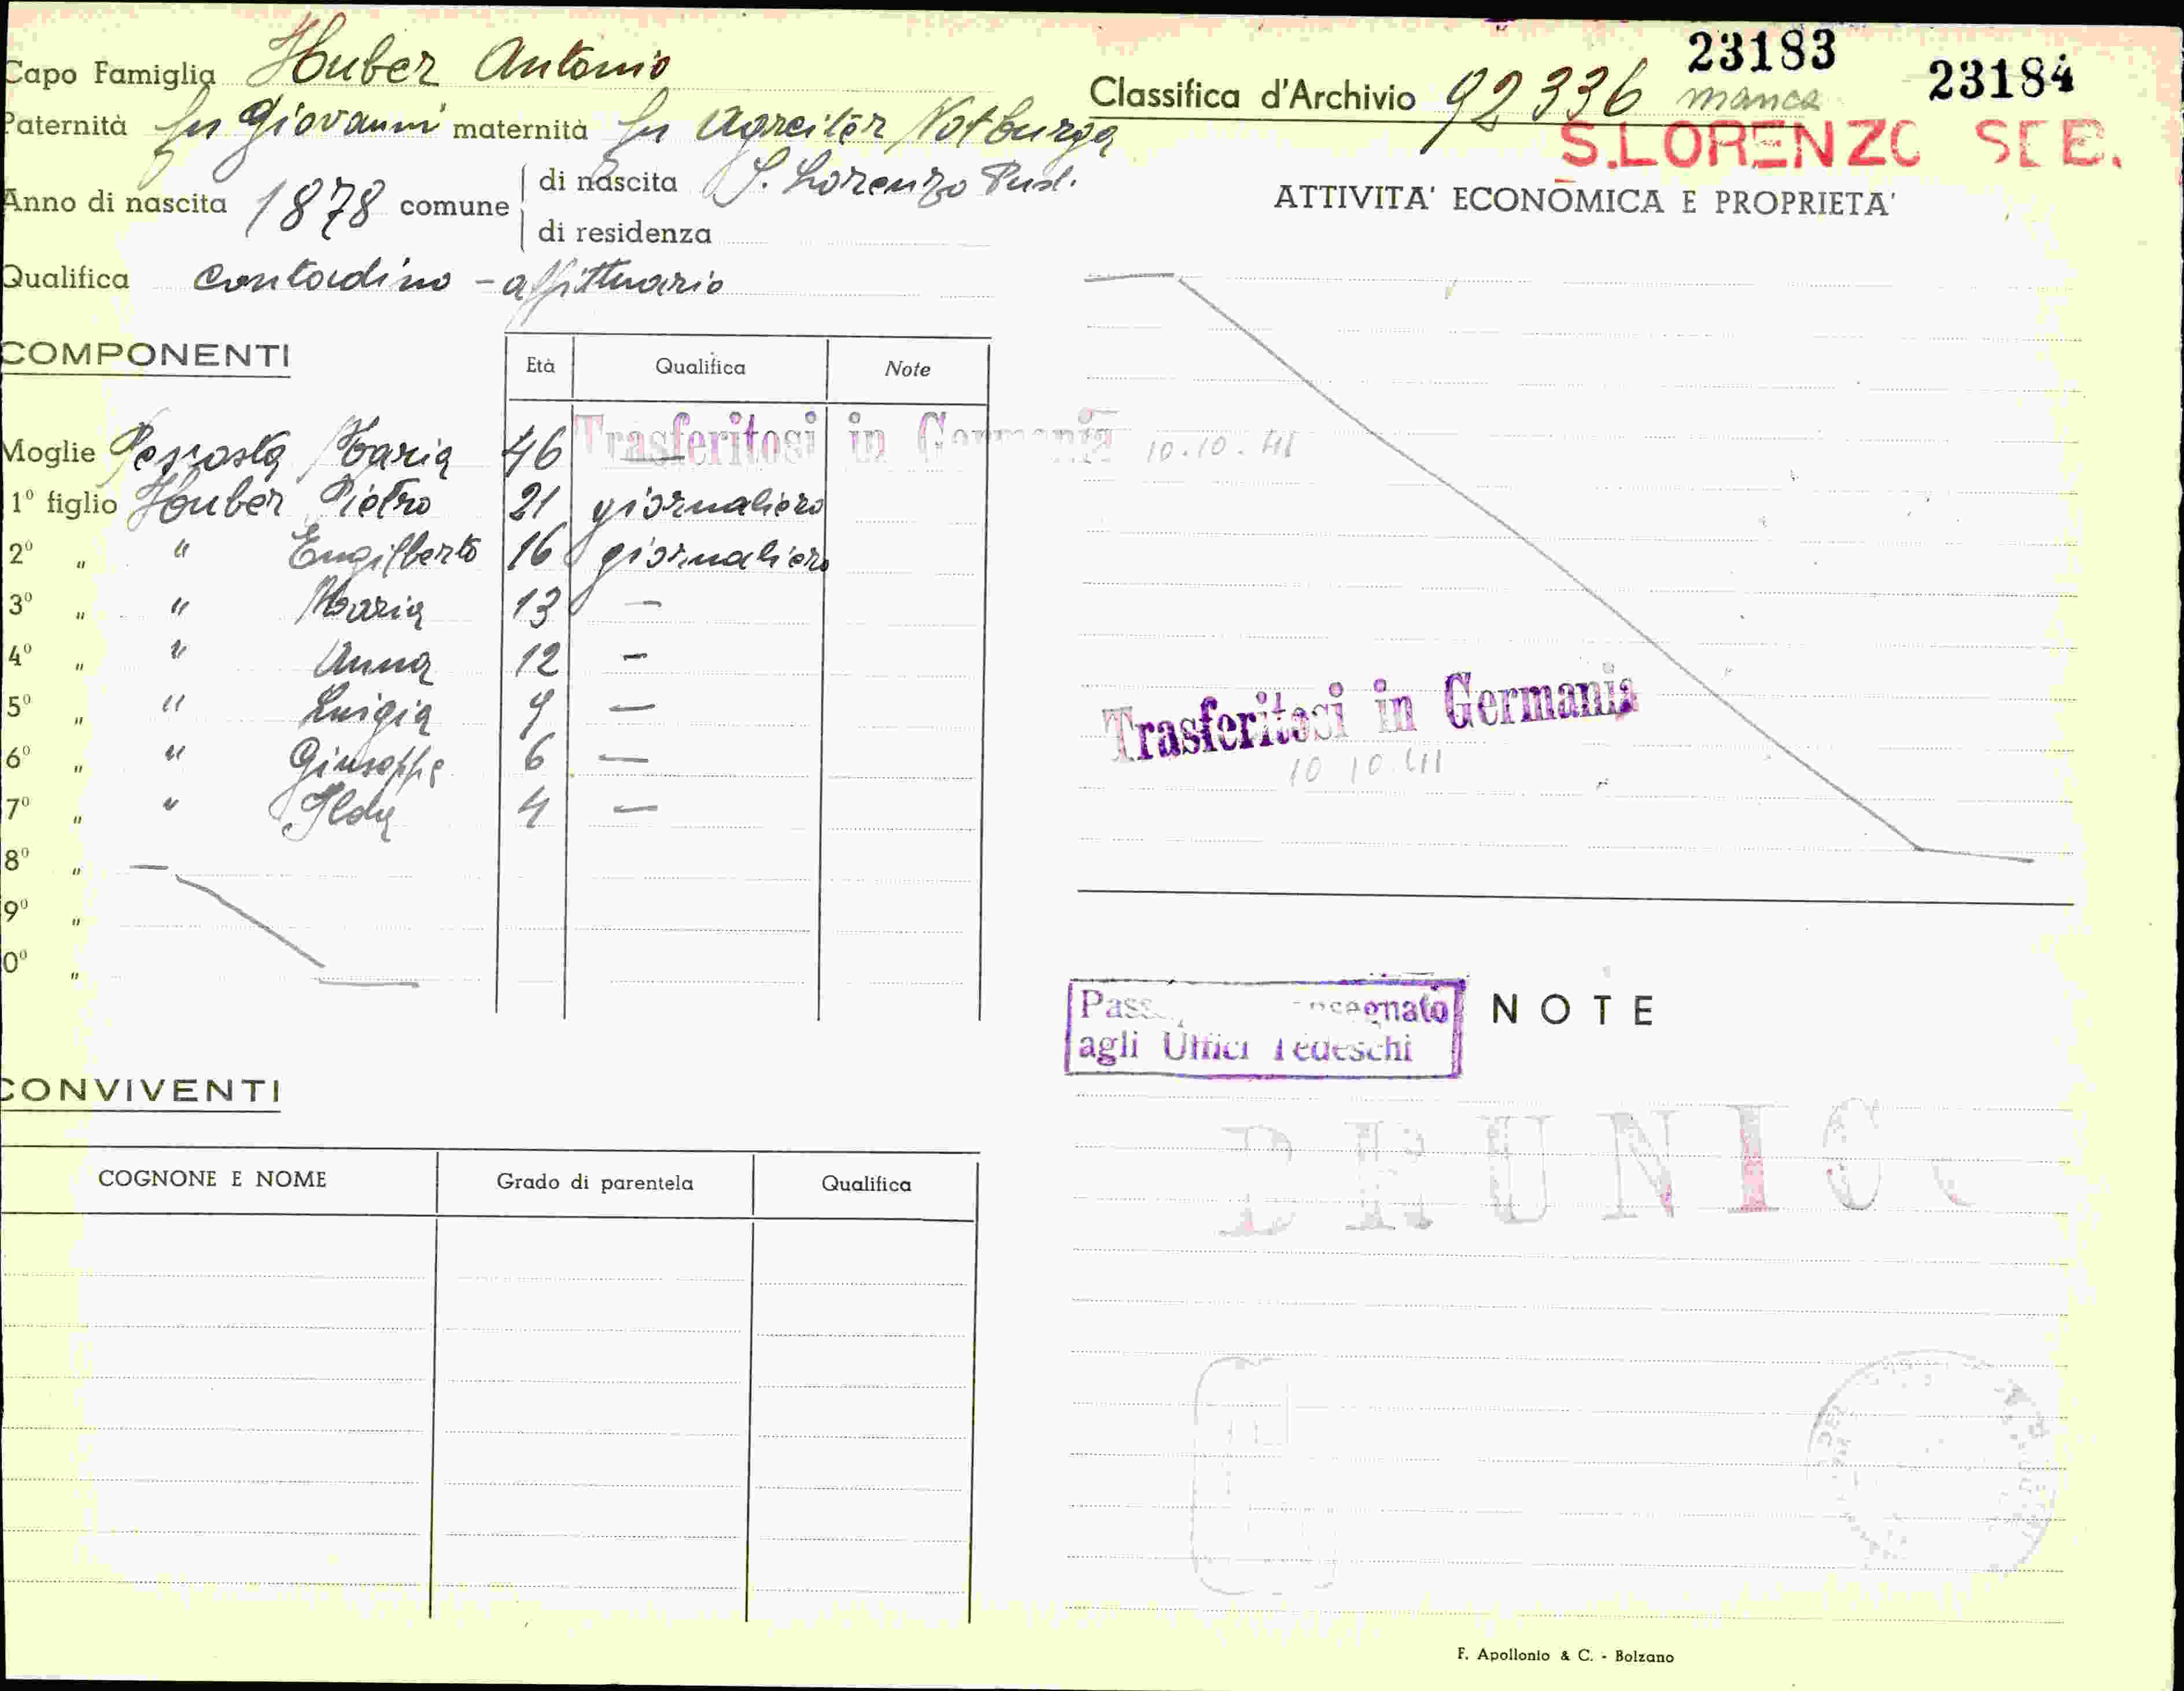 Capo Famiglia Huber Antonio
Classifica d'Archivio 92336 23183 manca 23184
Paternità fu Giovanni maternità fu Agreiter Notburga
S.LORENZO SEB.
Anno di nascita 1878 comune di nascita S. Lorenzo Pust.
di residenza
ATTIVITA' ECONOMICA E PROPRIETA'
Qualifica contadino - affittuario
COMPONENTI
Età Qualifica Note
Trasferitosi in Germania 10.10.41
Moglie Maria 46 —
1º figlio Huber Pietro 21 giornaliero
2º „ " Engilberto 16 giornaliero
3º „ " Maria 13 —
4º „ " Anna 12 —
5º „ " Luigia 9 —
6º „ " Giuseppe 6 —
7º „ " Ilda 4 —
8º „
9º „
0º „
Trasferitosi in Germania
10 10.41
agli Uffici Tedeschi
NOTE
BRUNICO
CONVIVENTI
COGNONE E NOME Grado di parentela Qualifica
F. Apollonio & C. - Bolzano